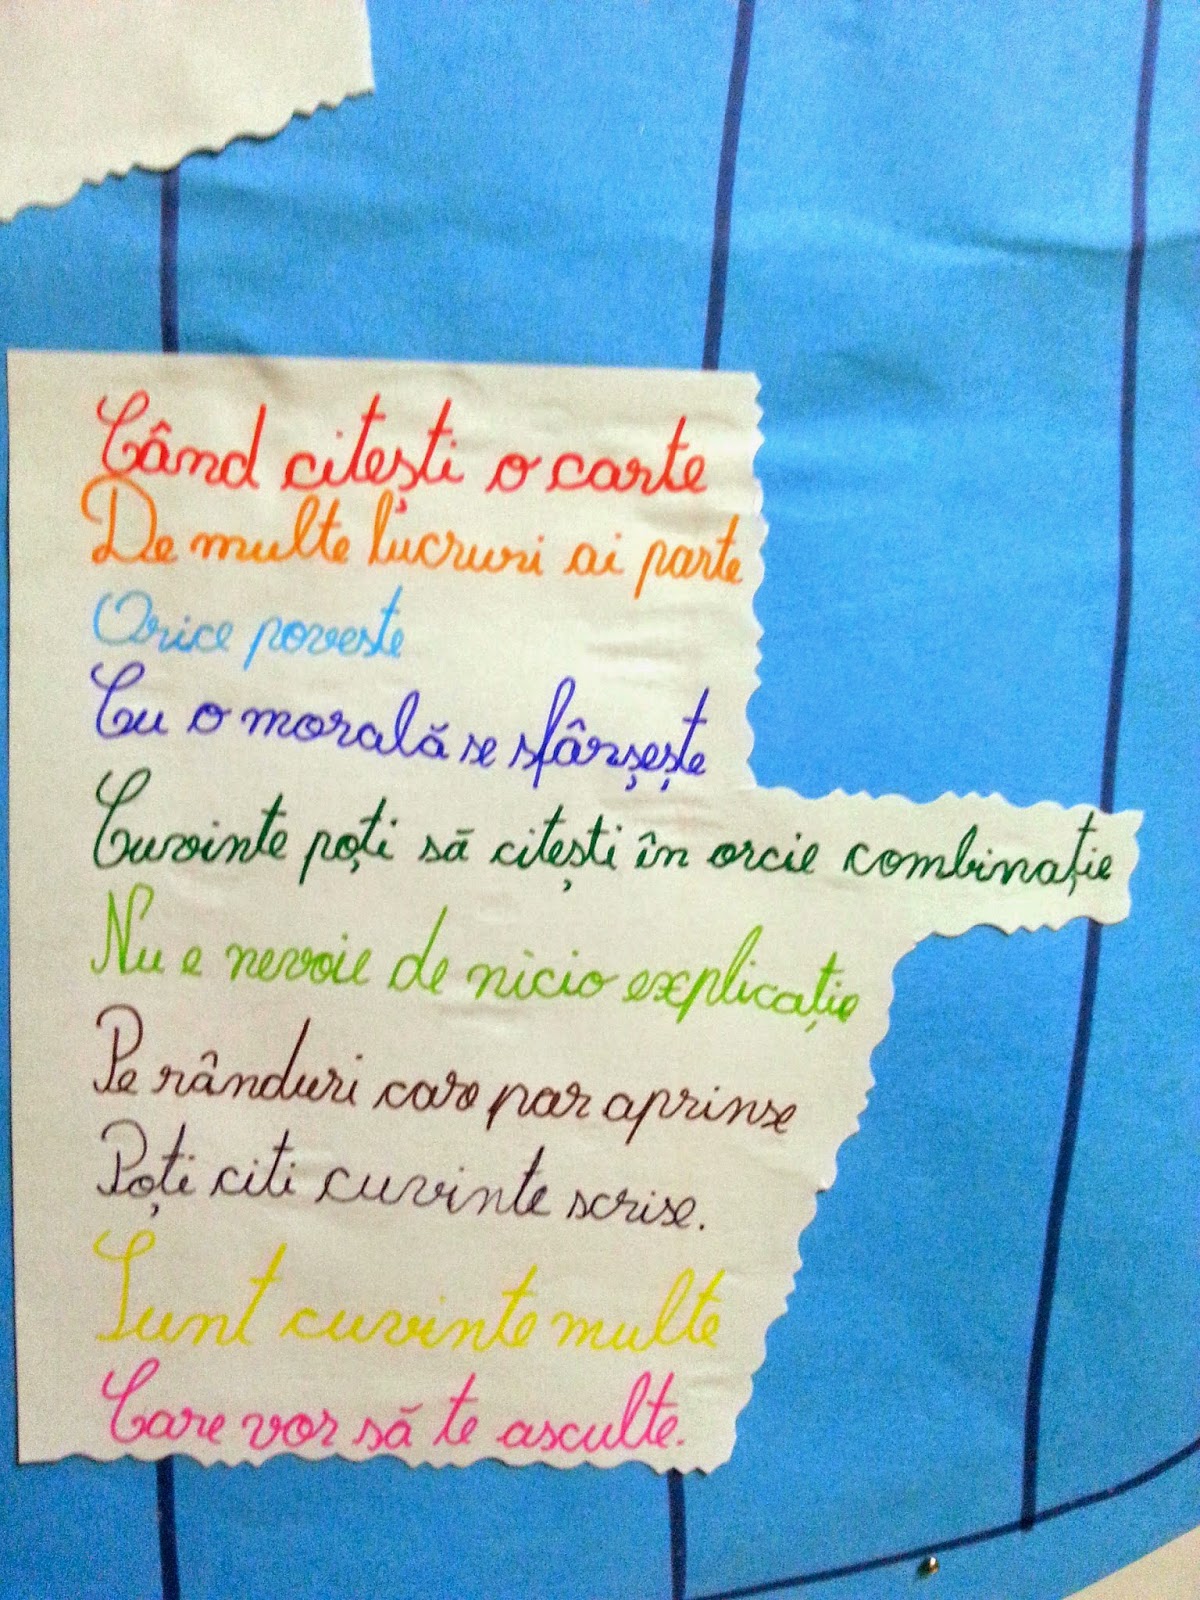 Când citești o carte
De multe lucruri ai parte
Orice poveste
Cu o morală se sfârșește
Cuvinte poți să citești în orcie combinație
Nu e nevoie de nicio explicație
Pe rânduri care par aprinse
Poți citi cuvinte scrise.
Sunt cuvinte multe
Care vor să te asculte.